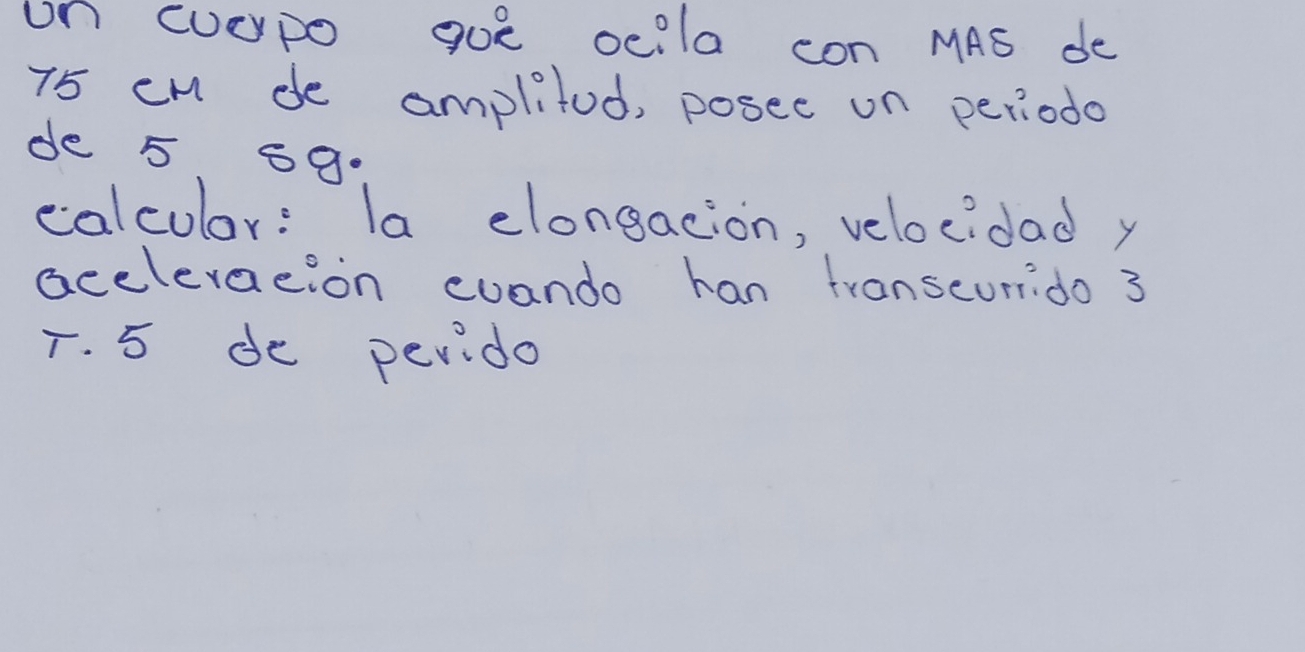 un cuerpo que ocila con MAS de
75 CM de amplitud, posee un periodo
de 5 sg.
calcular: la elongación, velocidad y
aceleración cuando han transcurrido 3
T. 5 de perido